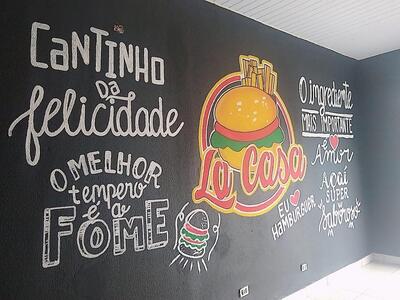 CANTINHO
DA
felicidade
O MELHOR
tempero
é a
FOME
La Casa
O ingrediente
MAIS IMPORTANTE
Amor
EU
HAMBÚRGUER
Açaí
SUPER
Saboroso